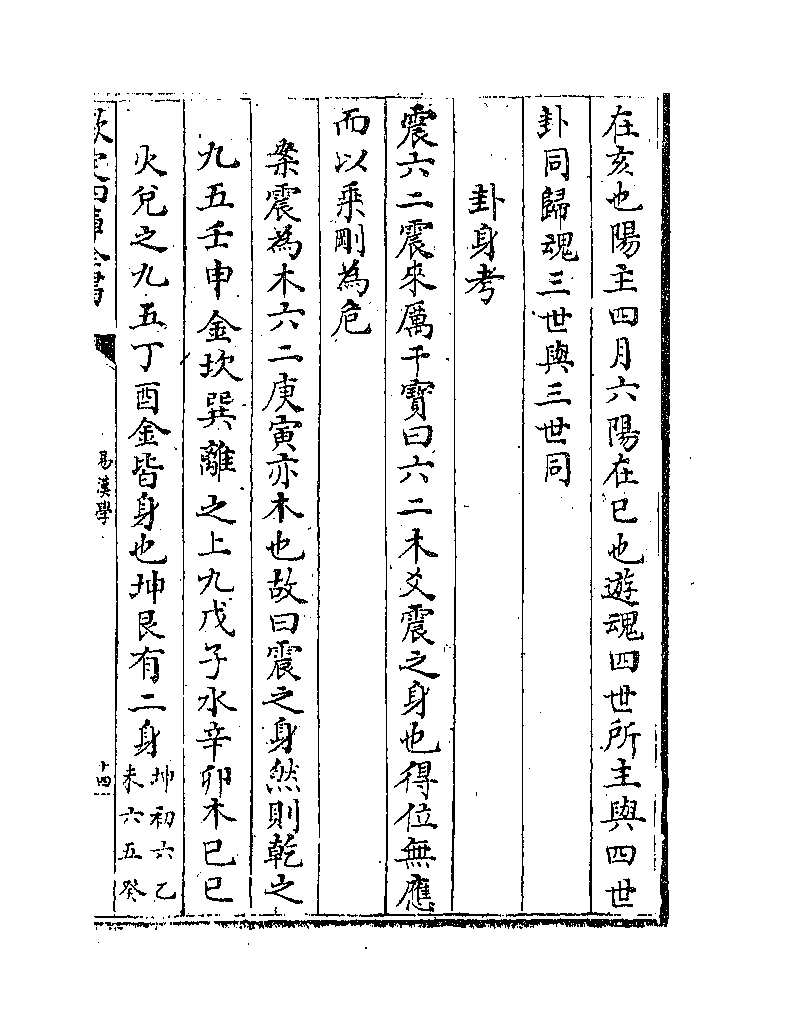 在亥也陽主四月六陽在巳也遊魂四世所主與四世
卦同歸魂三世與三世同
卦身考
震六二震來厲干寶曰六二木爻震之身也得位無應
而以乘剛為危
案震為木六二庚寅亦木也故曰震之身然則乾之
九五壬申金坎巽離之上九戊子水辛卯木巳巳
火兌之九五丁酉金皆身也坤艮有二身坤初六乙
未六五癸
欽定四庫全書
易漢學
十四